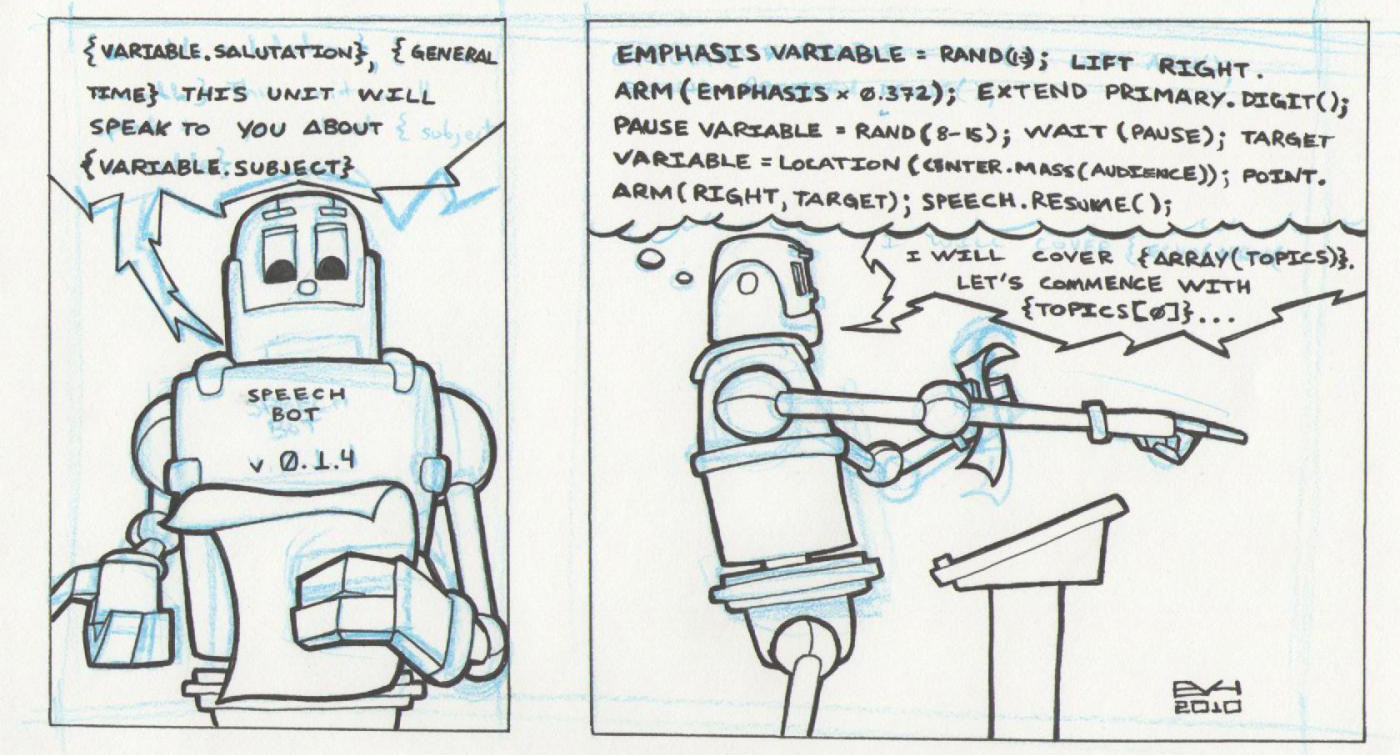 {VARIABLE.SALUTATION}, {GENERAL
TIME} THIS UNIT WILL
SPEAK TO YOU ABOUT
{ subject
{VARIABLE.SUBJECT}
SPEECH
BOT
v 0.1.4
EMPHASIS VARIABLE = RAND(1-3); LIFT RIGHT.
ARM(EMPHASIS × 0.372); EXTEND PRIMARY.DIGIT();
PAUSE VARIABLE = RAND(8-15); WAIT (PAUSE); TARGET
VARIABLE = LOCATION (CENTER.MASS(AUDIENCE)); POINT.
ARM(RIGHT, TARGET); SPEECH.RESUME();
I WILL COVER {ARRAY(TOPICS)}.
LET'S COMMENCE WITH
{TOPICS[0]}...
2010